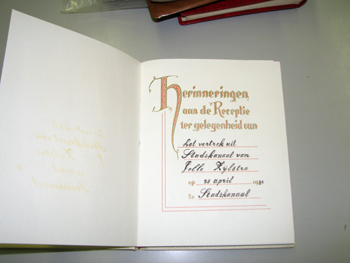 Herinneringen
aan de Receptie
ter gelegenheid van
het vertrek uit
Stadskanaal van
Jelle Zylstra
op 25 april
te Stadskanaal